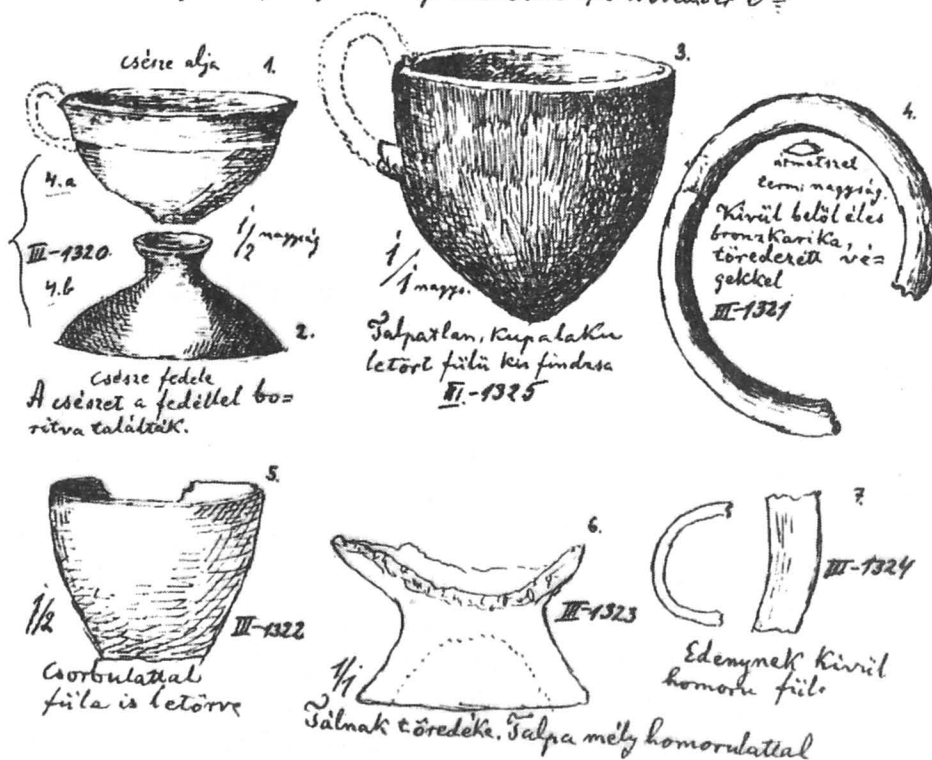 november 6
csésze alja 1.
4.a
III-1320.
4.b
1/2 nagyság
2.
csésze fedele
A csészét a fedéllel bo=
ritva találták.
3.
1/1 nagys.
Talpatlan, kupalaku
letört fülü kis findzsa
III.-1325
4.
átmetszet
termi nagyság
Kivül belöl éles
bronzkarika,
töredezett vé=
gekkel
III-1321
5.
1/2
III-1322
Csorbulattal
füla is letörve
6.
III-1323
1/1
Tálnak töredéke. Talpa mély homorulattal
7.
III-1324
Edenynek Kivül
homoru füle